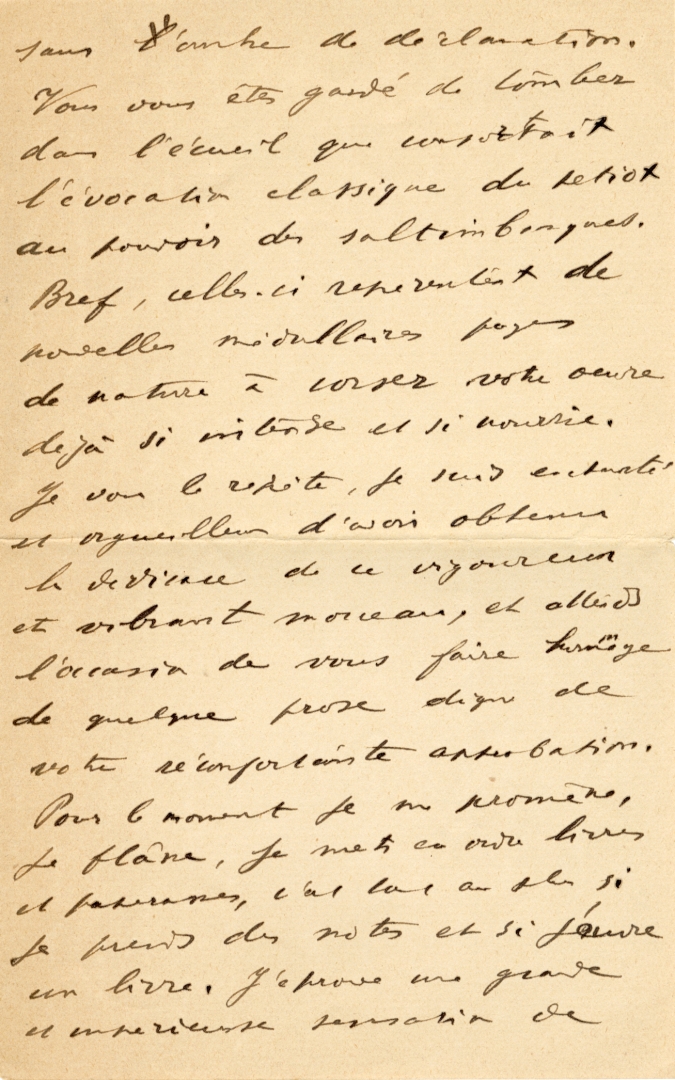 sans l'ombre de déclamation.
Vous vous êtes gardé de tomber
dans l'écueil que comportait
l'évocation classique du petiot
au pouvoir des saltimbanques.
Bref, celles-ci représentent de
nouvelles médullaires pages
de nature à corser votre œuvre
déjà si intense et si nourrie.
Je vous le répète, je suis enchanté
et orgueilleux d'avoir obtenu
la dédicace de ce vigoureux
et vibrant morceau, et attends
l'occasion de vous faire hommage
de quelque prose digne de
votre réconfortante approbation.
Pour le moment je me promène,
je flâne, je mets en ordre livres
et paperasses, c'est tout au plus si
je prends des notes et si j'ouvre
un livre. J'éprouve une grande
et impérieuse sensation de